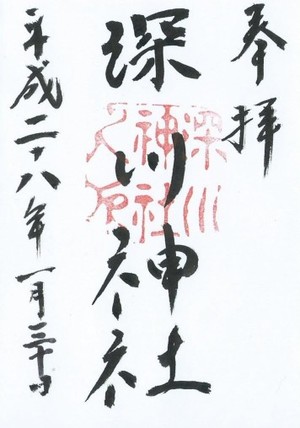 奉拝
深川神社
平成二十八年一月三十日
深川
神社
之印